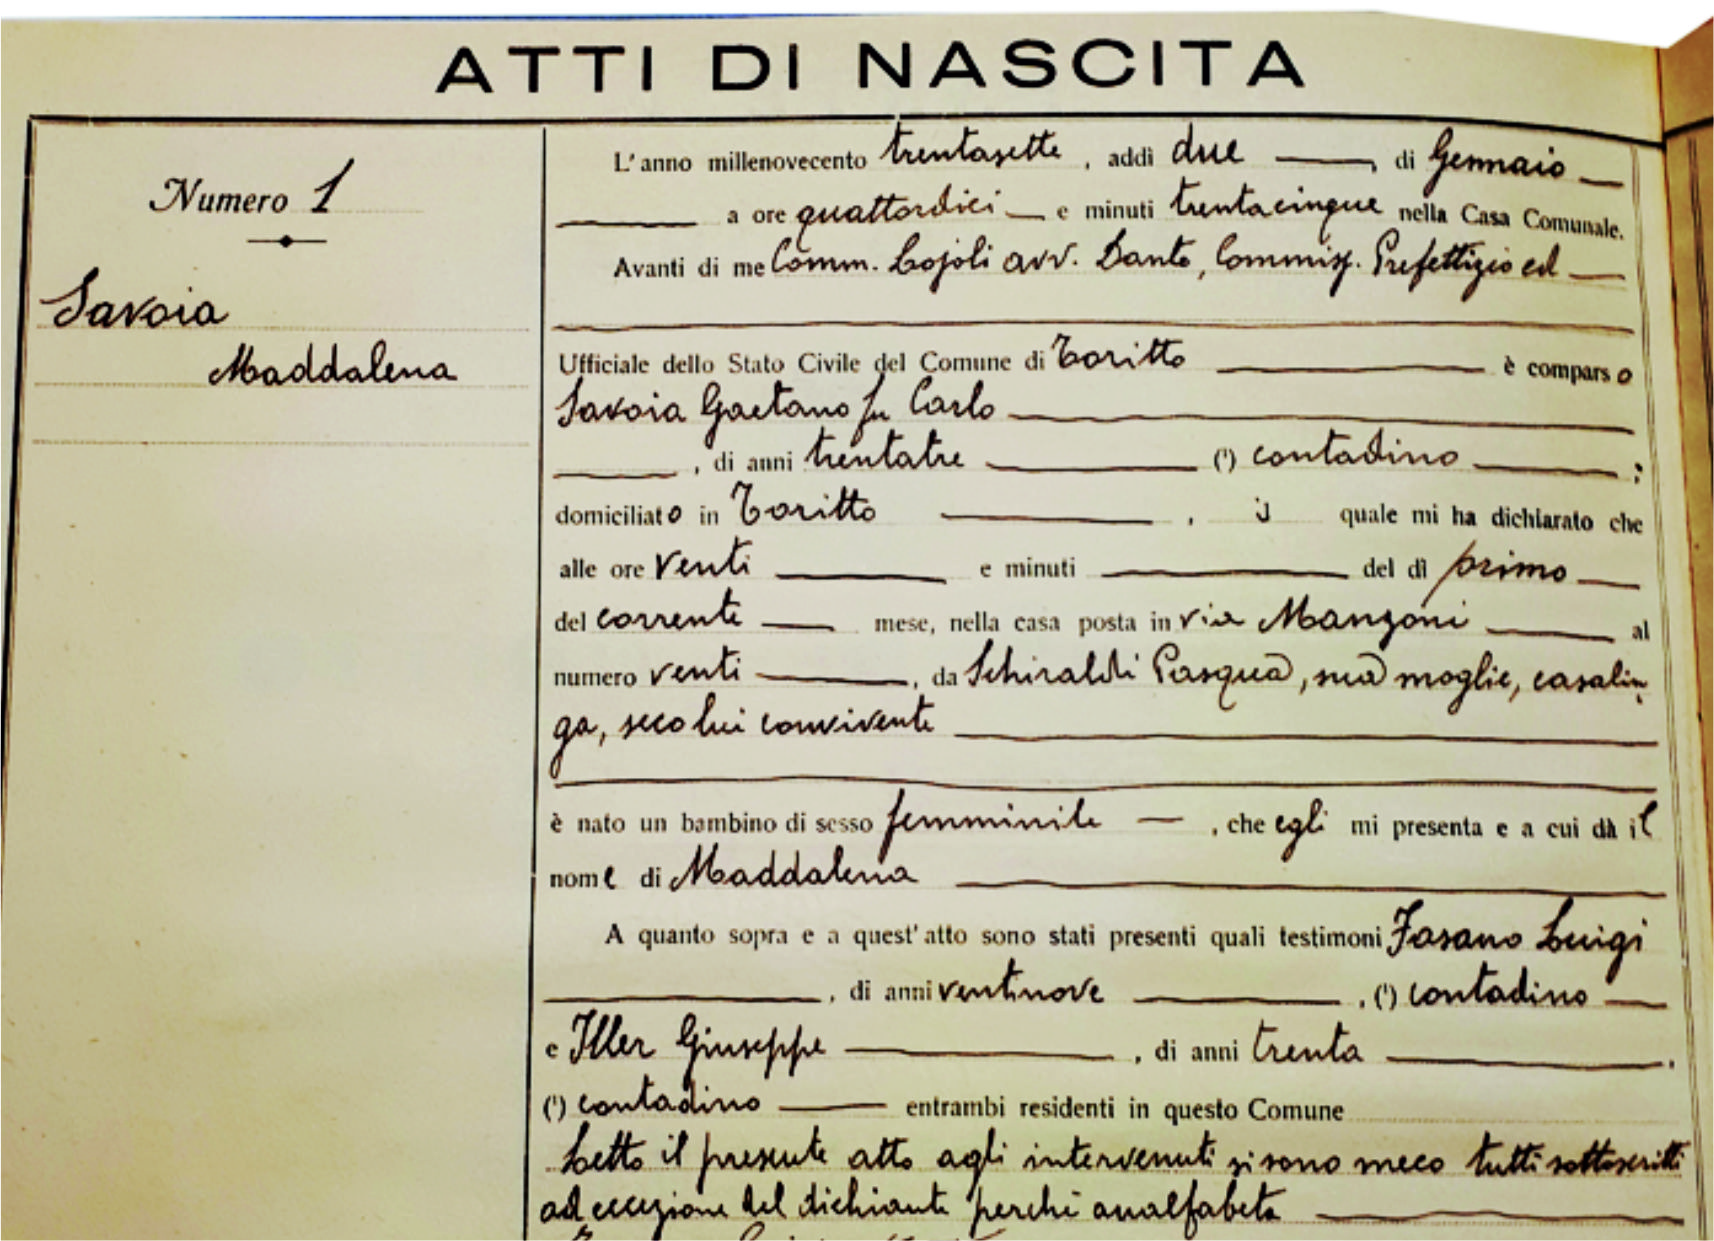 ATTI DI NASCITA
Numero 1
Savoia
Maddalena
L'anno millenovecento trentasette, addì due, di Gennaio
a ore quattordici e minuti trentacinque nella Casa Comunale.
Avanti di me Comm. Lojoli avv. Dante, Commiss. Prefettizio ed
Ufficiale dello Stato Civile del Comune di Toritto è comparso
Savoia Gaetano fu Carlo
, di anni trentatre (1) contadino ;
domiciliato in Toritto , il quale mi ha dichiarato che
alle ore venti e minuti del dì primo
del corrente mese, nella casa posta in via Manzoni al
numero venti , da Schiraldi Pasqua, sua moglie, casalin
ga, seco lui convivente
è nato un bambino di sesso femminile , che egli mi presenta e a cui dà il
nome di Maddalena
A quanto sopra e a quest'atto sono stati presenti quali testimoni Fasano Luigi
, di anni ventinove , (1) contadino
e Iller Giuseppe , di anni trenta ,
(1) contadino entrambi residenti in questo Comune
Letto il presente atto agli intervenuti si sono meco tutti sottoscritti
ad eccezione del dichiante perchè analfabeta